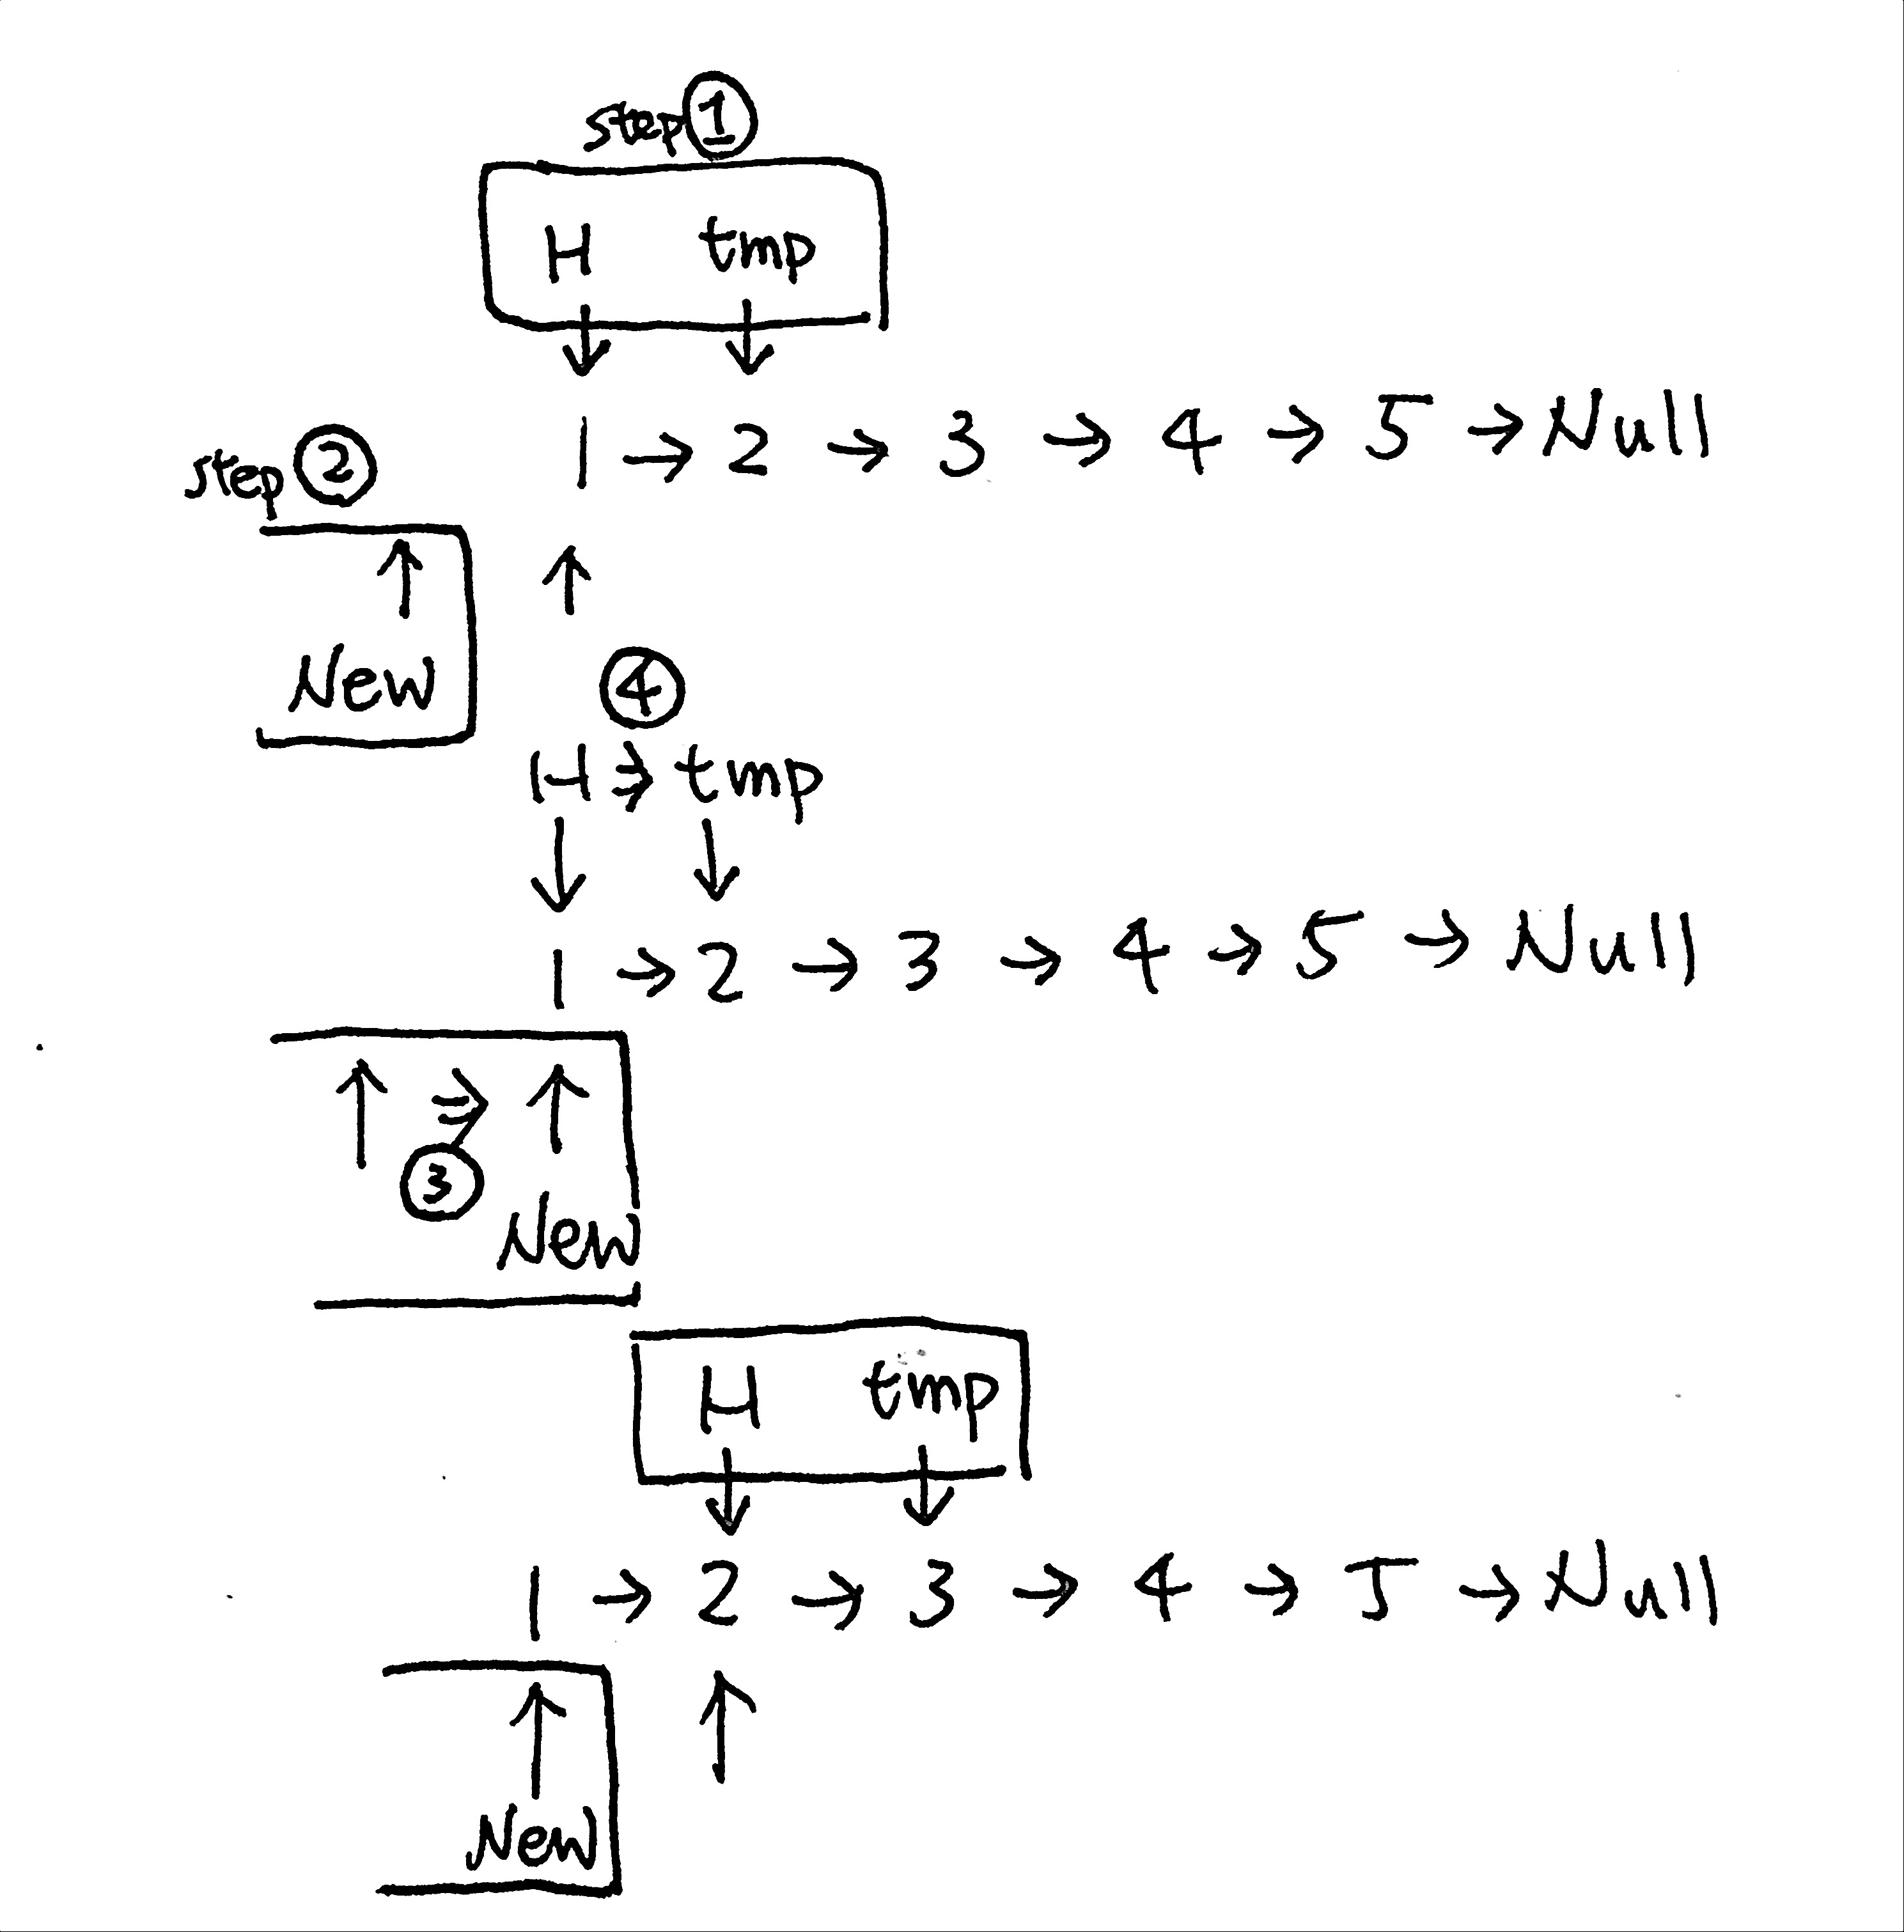 step ①
H tmp
1 → 2 → 3 → 4 → 5 → Null
step ②
↑ ↑
New
④
H → tmp
1 → 2 → 3 → 4 → 5 → Null
↑ → ↑
③
New
H tmp
1 → 2 → 3 → 4 → 5 → Null
↑ ↑
New